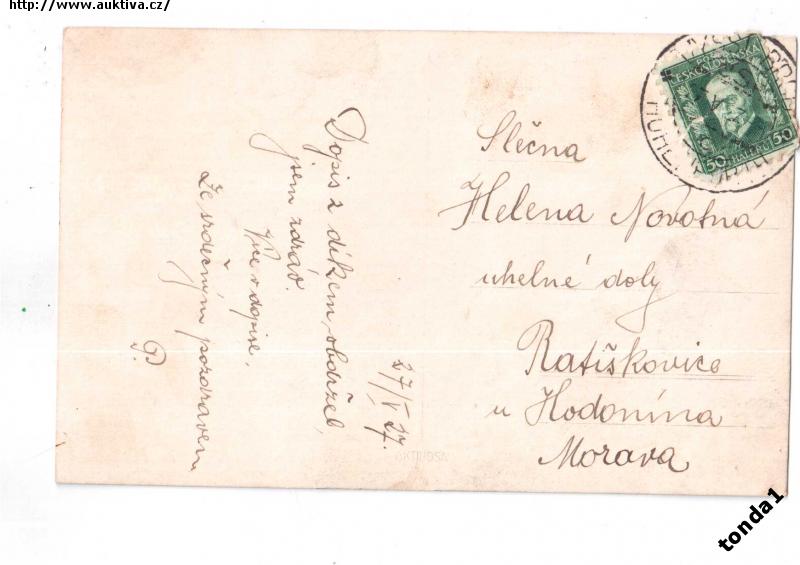 http://www.auktiva.cz/
Dopis s díkem obdržel,
jsem zdráv.
Více v dopise.
Ze srdečným pozdravem
P.
27/V 27.
Slečna
Helena Novotná
uhelné doly
Ratiškovice
u Hodonína
Morava
POŠTA
ČESKOSLOVENSKÁ
50 HALÉŘŮ 50
tonda1